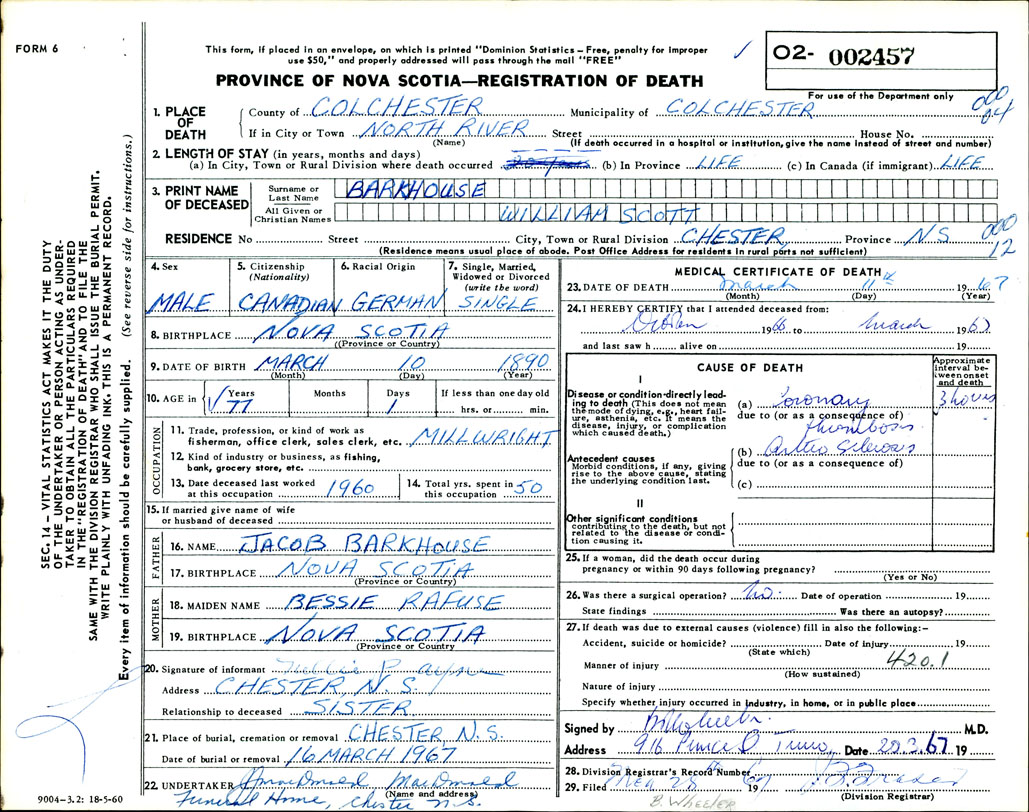 FORM 6
This form, if placed in an envelope, on which is printed "Dominion Statistics – Free, penalty for improper
use $50," and properly addressed will pass through the mail "FREE"
PROVINCE OF NOVA SCOTIA—REGISTRATION OF DEATH
O2- 002457
For use of the Department only
SEC. 14 – VITAL STATISTICS ACT MAKES IT THE DUTY
OF THE UNDERTAKER OR PERSON ACTING AS UNDER-
TAKER TO OBTAIN ALL THE PARTICULARS REQUIRED
IN THE "REGISTRATION OF DEATH" AND TO FILE THE
SAME WITH THE DIVISION REGISTRAR WHO SHALL ISSUE THE BURIAL PERMIT.
WRITE PLAINLY WITH UNFADING INK. THIS IS A PERMANENT RECORD.
Every item of information should be carefully supplied. (See reverse side for instructions.)
1. PLACE OF DEATH
County of COLCHESTER Municipality of COLCHESTER
000
04
If in City or Town NORTH RIVER Street House No.
(Name) (If death occurred in a hospital or institution, give the name instead of street and number)
2. LENGTH OF STAY (in years, months and days)
(a) In City, Town or Rural Division where death occurred (b) In Province LIFE (c) In Canada (if immigrant) LIFE
3. PRINT NAME OF DECEASED
Surname or Last Name BARKHOUSE
All Given or Christian Names WILLIAM SCOTT
000
12
RESIDENCE No Street City, Town or Rural Division CHESTER, Province N S
(Residence means usual place of abode. Post Office Address for residents in rural parts not sufficient)
4. Sex MALE
5. Citizenship (Nationality) CANADIAN
6. Racial Origin GERMAN
7. Single, Married, Widowed or Divorced (write the word) SINGLE
8. BIRTHPLACE NOVA SCOTIA
(Province or Country)
9. DATE OF BIRTH MARCH 10 1890
(Month) (Day) (Year)
10. AGE in Years Months Days If less than one day
77 1 hrs. or min.
OCCUPATION
11. Trade, profession, or kind of work as
fisherman, office clerk, sales clerk, etc. MILLWRIGHT
12. Kind of industry or business, as fishing,
bank, grocery store, etc.
13. Date deceased last worked
at this occupation 1960
14. Total yrs. spent in
this occupation 50
15. If married give name of wife
or husband of deceased
FATHER
16. NAME JACOB BARKHOUSE
17. BIRTHPLACE NOVA SCOTIA
(Province or Country)
MOTHER
18. MAIDEN NAME BESSIE RAFUSE
19. BIRTHPLACE NOVA SCOTIA
(Province or Country
20. Signature of informant
Address CHESTER, N.S.
Relationship to deceased SISTER
21. Place of burial, cremation or removal CHESTER N.S.
Date of burial or removal 16 MARCH 1967
22. UNDERTAKER MacDonald
(Name and address)
Funeral Home, Chester N.S.
9004–3.2: 18-5-60
MEDICAL CERTIFICATE OF DEATH
23. DATE OF DEATH March 11th 1967
(Month) (Day) (Year)
24. I HEREBY CERTIFY that I attended deceased from:
1966 to March 1967
and last saw h alive on 19
CAUSE OF DEATH
Approximate interval between onset and death
I
Disease or condition directly lead-
ing to death (This does not mean
the mode of dying, e.g., heart fail-
ure, asthenia, etc. It means the
disease, injury, or complication
which caused death.)
(a) Coronary 3 hours
due to (or as a consequence of)
thrombosis
(b) Arterio Sclerosis
due to (or as a consequence of)
(c)
Antecedent causes
Morbid conditions, if any, giving
rise to the above cause, stating
the underlying condition last.
II
Other significant conditions
contributing to the death, but not
related to the disease or condi-
tion causing it.
25. If a woman, did the death occur during
pregnancy or within 90 days following pregnancy?
(Yes or No)
26. Was there a surgical operation? No. Date of operation 19
State findings Was there an autopsy?
27. If death was due to external causes (violence) fill in also the following:–
Accident, suicide or homicide? Date of injury 19
(State which)
420.1
Manner of injury
(How sustained)
Nature of injury
Specify whether injury occurred in industry, in home, or in public place
Signed by M.D.
Address 916 Prince St Truro, Date 20.3.67 19
28. Division Registrar's Record Number
29. Filed 28th 1967
(Division Registrar)
B. WHEELER